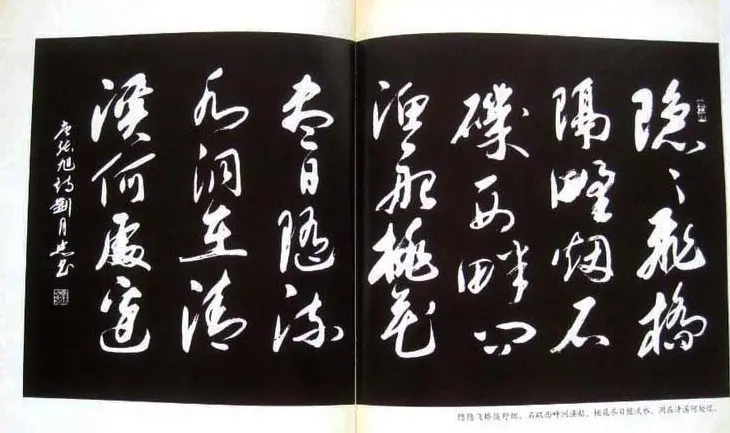 隐〻飞桥
隔野烟石
矶西畔问
渔船桃花
尽日随流
水洞在清
溪何处边
唐张旭诗刘月忠书
隐隐飞桥隔野烟，石矶西畔问渔船。桃花尽日随流水，洞在清溪何处边。